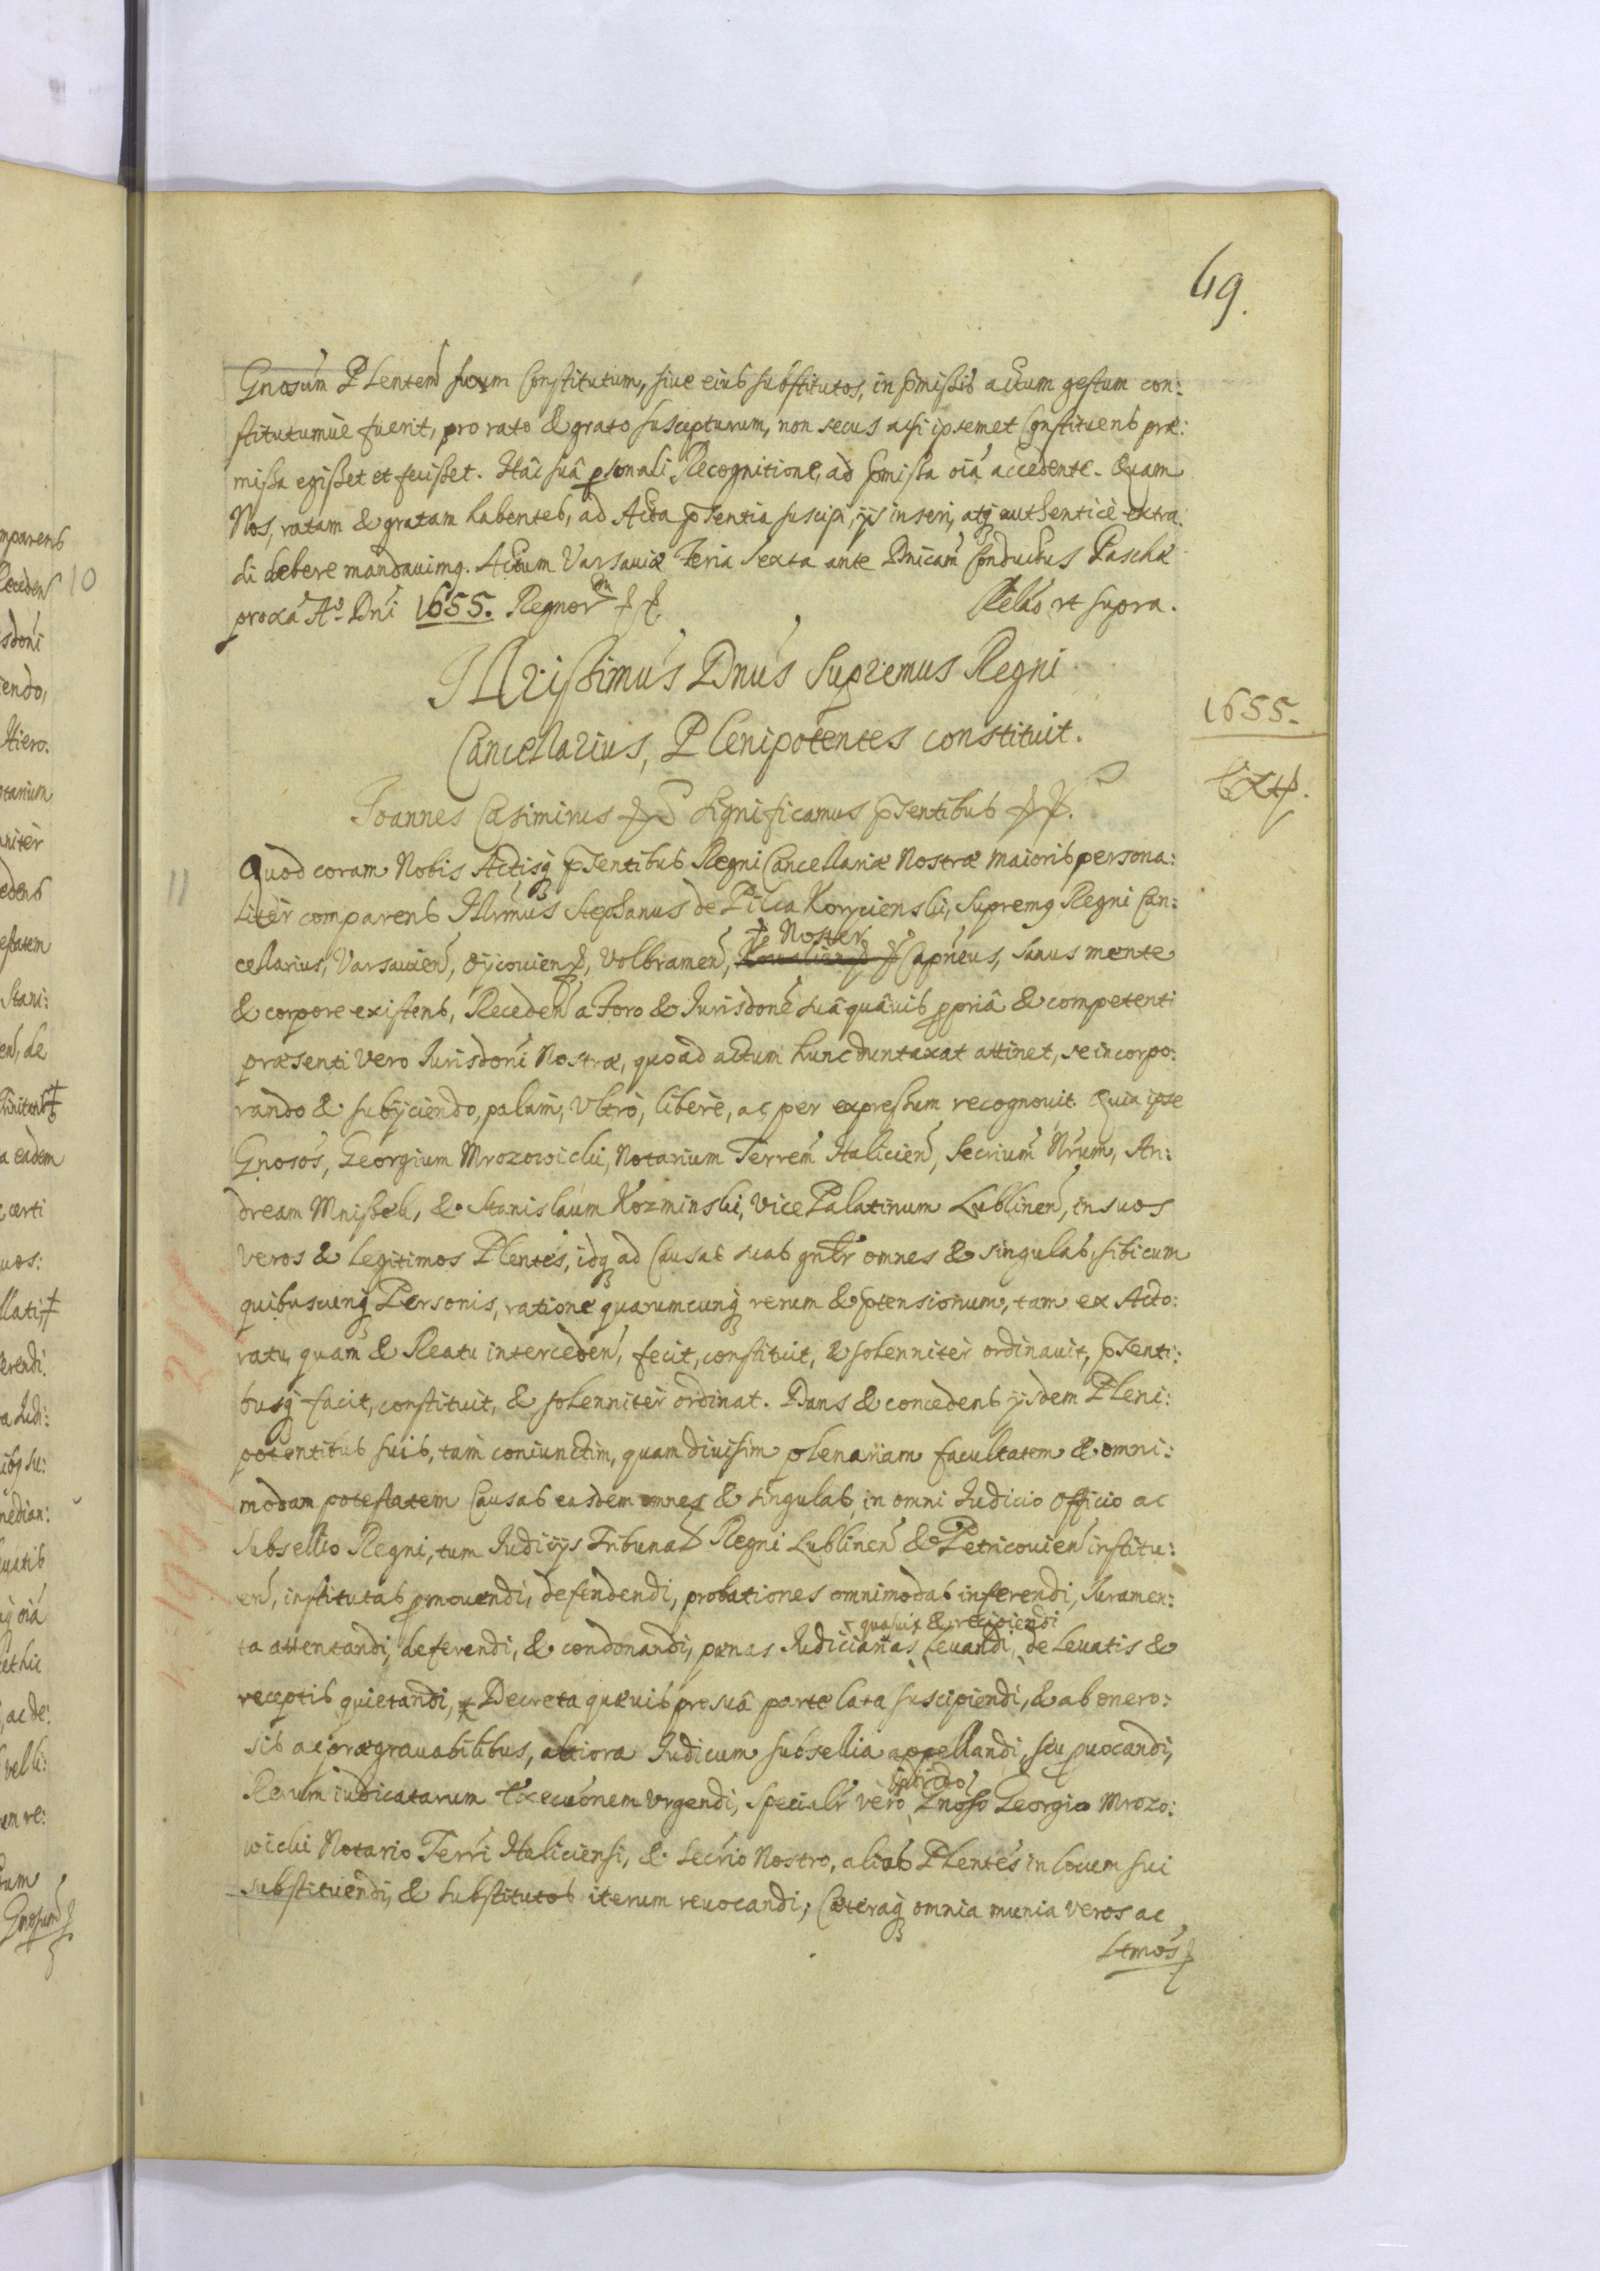 49.
Gnosum Plentem suum Constitutum, siue eius substitutos, in pmissis actum gestum con:
stitutumue fuerit, pro rato & grato suscepturum, non secus ac si ipsemet Constituens præ:
missa egisset et fecisset. Hâc suâ psonali Recognitione, ad pmissa oia accedente. Quam
Nos, ratam & gratam habentes, ad Acta pntia suscipi, ijs inseri, atq authenticè extra:
di debere mandauimq. Actum Varsauiæ Feria sexta ante Dnicam Conductus Paschæ
proxa Ao Dni 1655. Regnor
Relâo vt supra.
Illrissimus Dnus Supremus Regni
Cancellarius, Plenipotentes constituit.
1655.
Joannes Casimirus significamus pntibus
Quod coram Nobis Actisq pntibus Regni Cancellariæ Nostræ maioris persona:
liter comparens Illrmus Stephanus de Pilca Koryciński, Supremq Regni Can:
cellarius, Varsauien, Oycouien, Volbramen, Noster Capneus, sanus mente
& corpore existens, Receden a Foro & Jurisdone suâ quâuis ppriâ & competenti
præsenti vero Jurisdoni Nostræ, quoad actum hunc duntaxat attinet, se incorpo:
rando & subijciendo, palam, vltrò, liberè, ac per expressum recognouit. Quia ipse
Gnosos, Georgium Mrozowicki, Notarium Terrem Halicien, Secrium Nrum, An:
dream Mniszek, & Stanislaum Kozminski, Vice Palatinum Lublinen, in suos
veros & legitimos Plentes, idq ad Causas suas gnlr omnes & singulas, sibi cum
quibuscunq Personis, ratione quarumcunq rerum & ptensionum, tam ex Acto:
ratu, quam & Reatu interceden, fecit, constituit, & solenniter ordinauit, pnti:
busq facit, constituit, & solenniter ordinat. Dans & concedens ijsdem Pleni:
potentibus suis, tam coniunctim, quam diuisim plenariam facultatem & omni:
modam potestatem Causas easdem omnes & singulas, in omni Judicio Officio ac
Subsellio Regni, tum Judicijs Tribunal Regni Lublinen & Petricouien institu:
en, institutas pmouendi, defendendi, probationes omnimodas inferendi, Juramen:
quasuis & recipiendi
ta attentandi, deferendi, & condonandi, pænas Judiciarias leuandi, de leuatis &
receptis quietandi, Decreta quæuis pro suâ parte lata suscipiendi, & ab onero:
sis ac prægrauabilibus, altiora Judicum subsellia appellandi, seu puocandi,
Rerum iudicatarum Executionem vrgendi, specialr vero Gnoso Georgio Mrozo:
wicki Notario Terri Haliciensi, & Secrio Nostro, alios Plentes in locum sui
substituendi, & substitutos iterum reuocandi; Cæteraq omnia munia veros ac
Ltmos